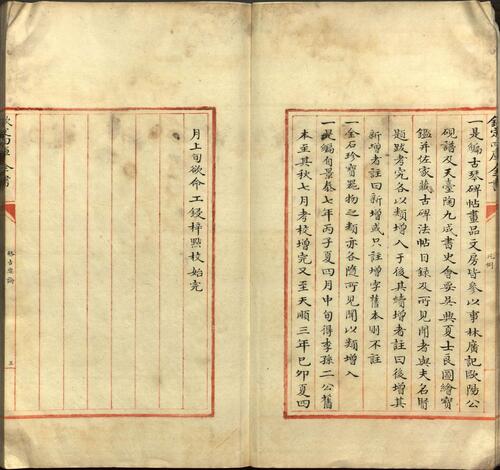 一是編古琴碑帖畫品文房皆參以事林廣記歐陽公
硯譜及天臺陶九成書史會要吳興夏士良圖繪寶
鑑并佐家藏古碑法帖目録及所見聞者與夫名賢
題跋考究各以類增入于後其續增者註曰後增其
新增者註曰新增或只註增字舊本則不註
一金石珍寶器物之類亦各隨所見聞以類增入
一是編自景泰七年丙子夏四月中旬得李孫二公舊
本至其秋七月考校增完又至天順三年己卯夏四
月上旬欲命工鋟梓㸃校始完
格古要論
五